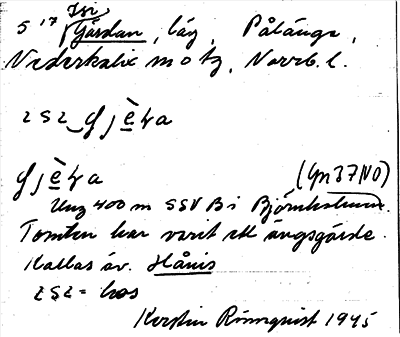 Isi
5 17 Gärdan, läg, Pålänge,
Nederkalix m o tg, Norrb. l.
ɪsɪ‿gjèɽa
gjèɽa
Ung 400 m SSV B i Björnholmen.
Tomten har varit ett ängsgärde.
Kallas äv. Hånis
ɪsɪ = hos
Kerstin Rönnquist 1945